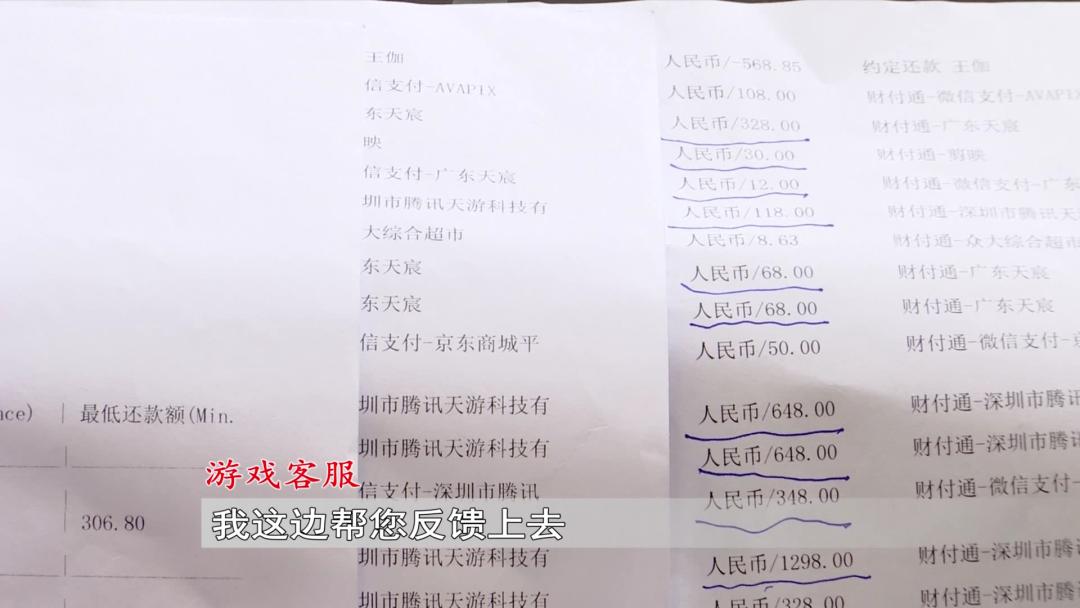 王伽 人民币/-568.85 约定还款 王伽
信支付-AVAPIX 人民币/108.00 财付通-微信支付-AVAPIX
东天宸 人民币/328.00 财付通-广东天宸
映 人民币/30.00 财付通-剪映
信支付-广东天宸 人民币/12.00 财付通-微信支付-广东
圳市腾讯天游科技有 人民币/118.00 财付通-深圳市腾讯天
大综合超市 人民币/8.63 财付通-众大综合超市
东天宸 人民币/68.00 财付通-广东天宸
东天宸 人民币/68.00 财付通-广东天宸
信支付-京东商城平 人民币/50.00 财付通-微信支付-京
nce) 最低还款额(Min. 圳市腾讯天游科技有 人民币/648.00 财付通-深圳市腾讯
圳市腾讯天游科技有 人民币/648.00 财付通-深圳市腾讯
游戏客服
信支付-深圳市腾讯 人民币/348.00 财付通-微信支付-
306.80
我这边帮您反馈上去
圳市腾讯天游科技有 人民币/1298.00 财付通-深圳市腾讯
圳市腾讯天游科技有 人民币/328.00 财付通-深圳市腾讯